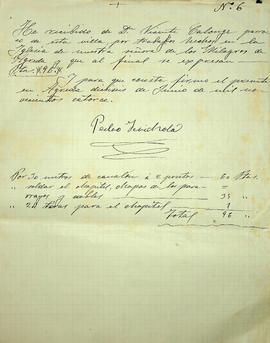 Nº 6
He recibido de D. Vicente Calonge parro
co de esta villa por trabajos hechos en la
Iglesia de nuestra señora de los Milagros de
Agreda y que al final se expresan
Ptas.
Y para que conste firmo el presente
en Agreda dieciseis de Junio de mil no
vecientos catorce.
Pedro
Por 30 metros de canalón á 2 pesetas — 60 Ptas.
" soldar el chapitel, chapas de los para
rrayos y cables — 35 "
" 20 tejas para el chapitel — 1 "
Total 96 "